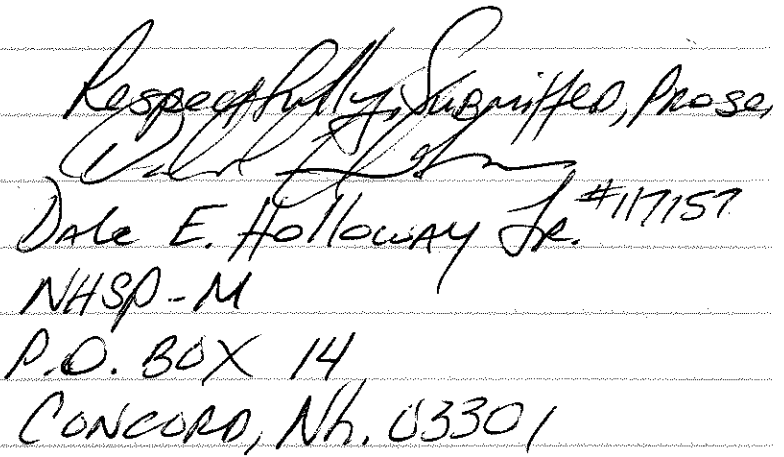 Respectfully, Submitted, Prose,
Dale E. Holloway Jr. #117157
NHSP-M
P.O. BOX 14
CONCORD, Nh. 03301